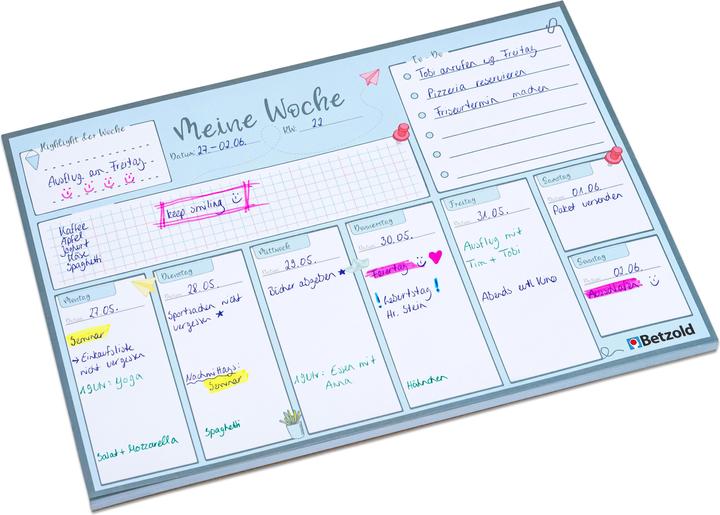 Highlight der Woche
Ausflug am Freitag
Meine Woche
Datum: 27. – 02.06. KW: 22
To - Do
Tobi anrufen wg. Freitag
Pizzeria reservieren
Friseurtermin machen
Kaffee
Äpfel
Joghurt
Käse
Spaghetti
keep smiling
Montag
Datum: 27.05.
Seminar
→ Einkaufsliste
nicht vergessen
19 Uhr: Yoga
Salat + Mozzarella
Dienstag
Datum: 28.05.
Sportsachen nicht
vergessen
Nachmittags:
Seminar
Spaghetti
Mittwoch
Datum: 29.05.
Bücher abgeben
19 Uhr: Essen mit
Anna
Donnerstag
Datum: 30.05.
Feiertag
! Geburtstag !
Hr. Stein
Hähnchen
Freitag
Datum: 31.05.
Ausflug mit
Tim + Tobi
Abends evtl. Kino
Samstag
Datum: 01.06.
Paket versenden
Sonntag
Datum: 02.06.
Ausschlafen
Betzold